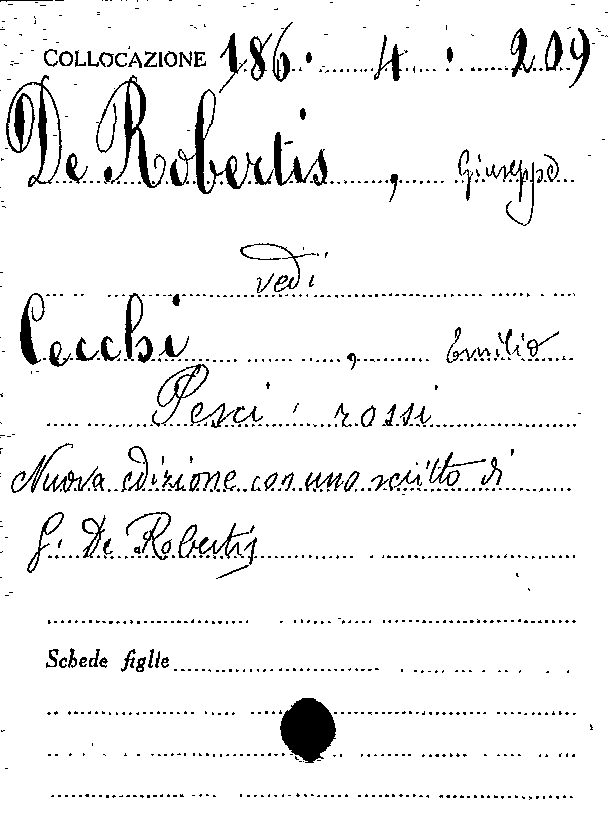 COLLOCAZIONE 186 · 4 · 209
De Robertis, Giuseppe
vedi
Cecchi, Emilio
Pesci rossi
Nuova edizione con uno scritto di
G. De Robertis
Schede figlie